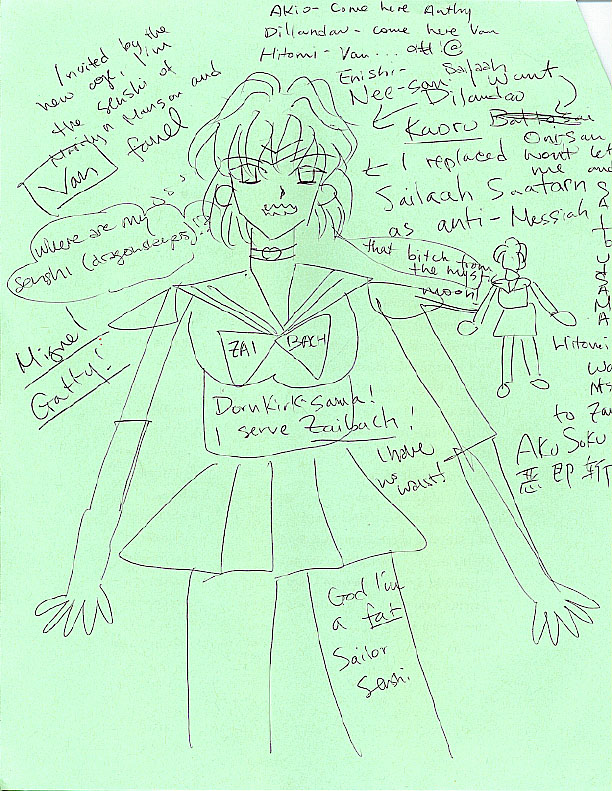 Akio- Come here Anthy
Dillandau- come here Van
Hitomi- Van...
Enishi-
Nee-san! Want
Dilandau
Kaoru
Onisan
I replaced wont let
me and
Sailaah Saatarn
as anti-Messiah
Invited by the
new age, I'm
the senshi of
Marilyn Manson and
Van fanel
where are my
senshi (dragonslayers)!?
that bitch from
the mystic
moon!
Miguel
Gatty!
ZAI BACH
Dornkirk-sama!
I serve Zaibach!
I have
no waist!
Hitomi
to Za
AKU SOKU
悪 即 斬
God I'm
a fat
Sailor
Senshi